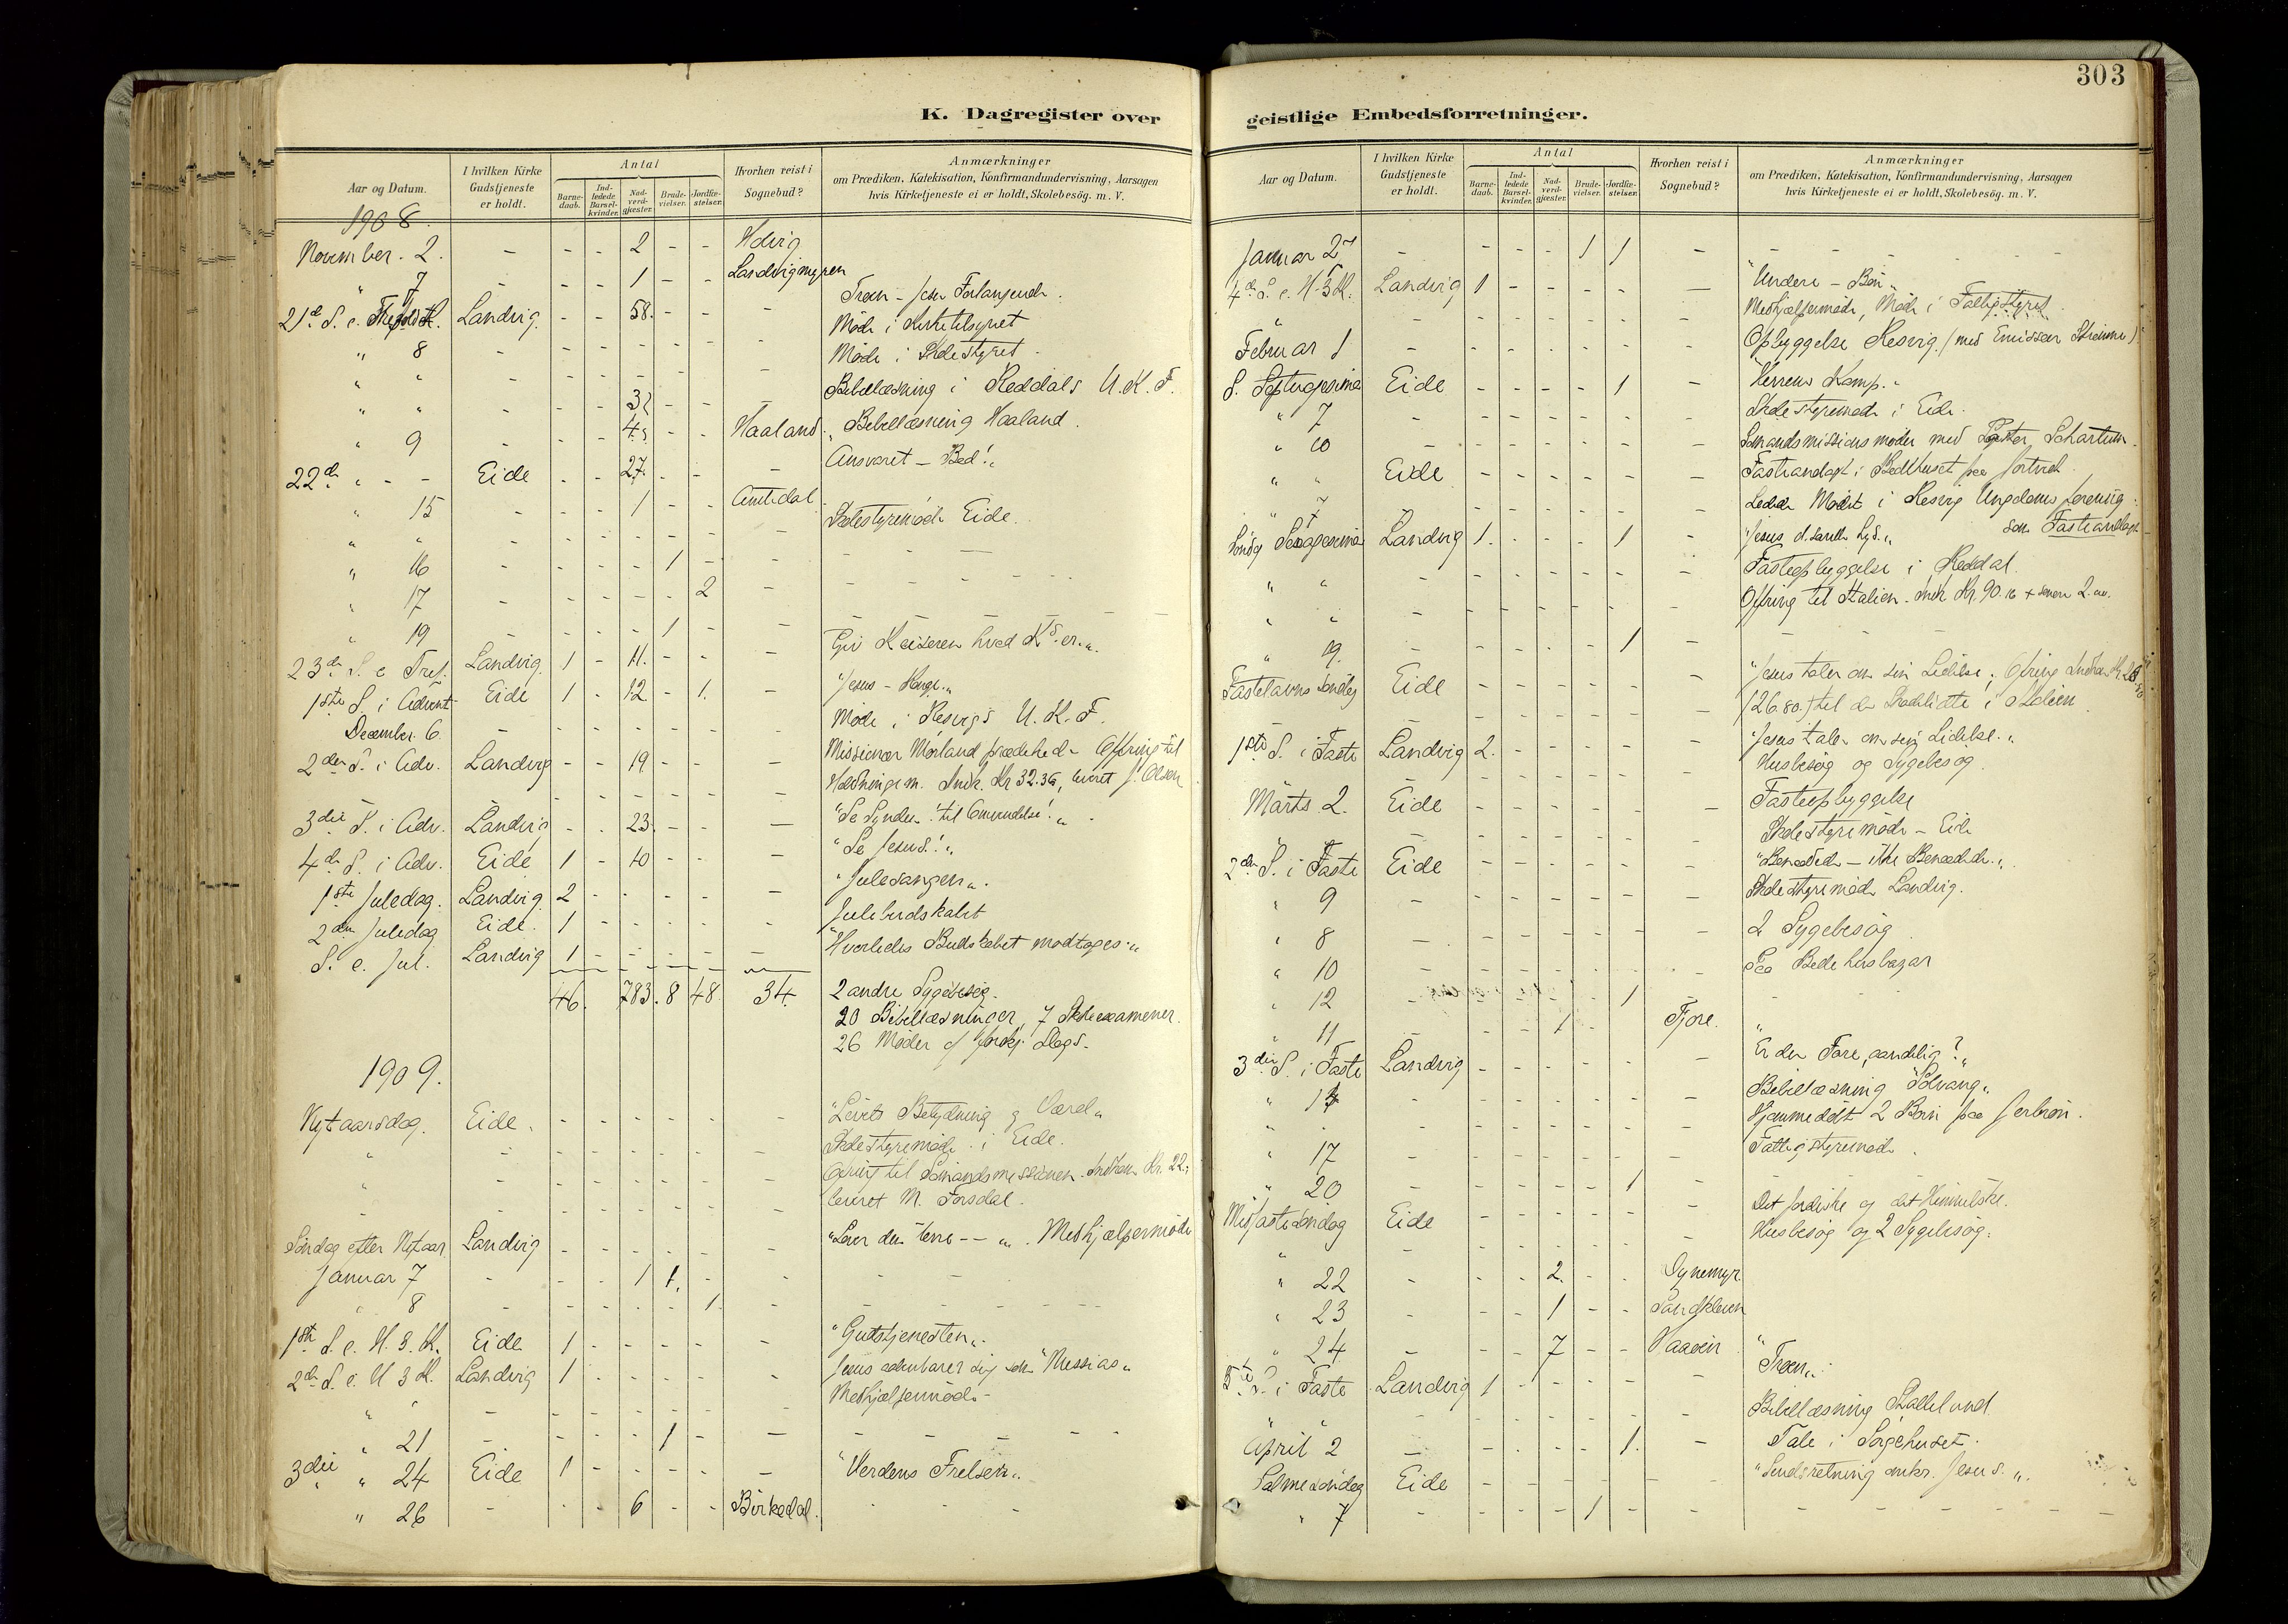 K. Dagregister over
Aar og Datum.
I hvilken Kirke Gudstjeneste er holdt.
Antal
Barne-daab.
Ind-ledede Barsel-kvinder.
Nad-verd-gjæster.
Brude-vielser.
Jordfæ-stelser.
Hvorhen reist i Sognebud?
Anmærkninger
om Prædiken, Katekisation, Konfirmandundervisning, Aarsagen
hvis Kirketjeneste ei er holdt, Skolebesög. m. V.
1908.
November. 2. - - - 2 - -
" 7 - - - 1 - - Landvigmyren
21de S. e. Landvig. - - 58. - - - Troen -
" 8 - - - - - - - Møde i Kirketilsynet
" " - - - - - - - Møde i Skolestyret.
" " - - - - - - Bibellæsning i Reddals U. K. F.
" 9 - - - - - Haaland. Bibellæsning Haaland.
22de " - - Eide - - 27. - - - Ansvaret - Bed!"
" 15 - - - 1 - -
" " - - - - - - - Skolestyremøde Eide.
" 16 - - - - 1 - - - -
" 17 - - - - - 2 - - - - -
" 19 - - - - 1 - - - - - -
23de S. e Tref. Landvig. 1 - 11. - - - Giv Keiseren hvad Ks. er.".
1ste S. i Advent Eide 1 - 12 - 1. - "Jesus - Konge."
December. 6. - - - - - - - Møde i Resvigs U. K. F.
2den S. i Adv. Landvig - - 19 - - - Missionær Mørland prædiked - Offring til
Hedningem. Indk. Kr 32.36, leveret J. Olsen
3die S. i Adv. Landvig - - 23. - - - "Se Synden! til Omvendelse!"
4de S. i Adv. Eide 1 - 10 - - - "Se Jesus!"
1ste Juledag. Landvig. 2 - - - - - "Julesangen".
2den Juledag Eide. 1 - - - - - Julebudskabet
S. e. Jul. Landvig 1 - - - - - "Hvorledes Budskabet modtages."
46. 783. 8 48. 34. 2 andre Sygebesøg.
20 Bibellæsninger, 7 Skoleexamener.
26 Møder af forskj. Slags.
1909.
Nytaarsdag. Eide. - - - - - - "Livets Betydning og Værd"
" - - - - - - - Skolestyremøde i Eide.
" - - - - - - - Offring til Sømandsmissionen. Indkom Kr. 22.
" - - - - - - - leveret M. Forsdal.
Søndag efter Nytaar Landvig - - - - - - Medhjælpermøde
Januar 7 - - - 1 1. - - - -
" 8 - - - - - 1. - - - -
1ste S. e. H. 3. K. Eide 1 - - - - - "Gudstjenesten".
2den S. e. H 3 K. Landvig 1 - - - - - Jesus aabenbarer sig som "Messias"
" " - - - - - - - Medhjælpermøde -
" 21 - - - - 1 - - - - - -
3die " " 24 Eide 1 - - - - - "Verdens Frelser".
" 26 - - - 6 - - Birkedal. - - -
303
geistlige Embedsforretninger.
Aar og Datum.
I hvilken Kirke Gudstjeneste er holdt.
Antal
Barne-daab.
Ind-ledede Barsel-kvinder.
Nad-verd-gjæster.
Brude-vielser.
Jordfæ-stelser.
Hvorhen reist i Sognebud?
Anmærkninger
om Prædiken, Katekisation, Konfirmandundervisning, Aarsagen
hvis Kirketjeneste ei er holdt, Skolebesög. m. V.
Januar 27 - - - - 1 1 - - - - - -
4de S. e. H. 3 K. Landvig 1 - - - - - "Undere - Bøn"
" - - - - - - - Medhjælpermøde, Møde i Fattigstyret.
Februar 1 - - - - - - - Opbyggelse Resvig.
S. Septuagesima Eide - - - - 1 - "Herrens Kamp."
" 7 - - - - - - - Skolestyremøde i Eide.
" 10 - - - - - - - Sømandsmissionsmøder med Pastor Schartum.
" " Eide - - - - - - Fasteandagt i Bedehuset
" 7 - - - - - - - Leder Mødet i Resvig Ungdomsforening.
som Fasteandagt
Søndg Sexagesima Landvig 1. - - - 1 - "Jesus d. sande Lys."
" " - - - - - - - Fasteopbyggelse i Reddal.
" " - - - - - - - Offring til Italien. Indk Kr. 90.16 + senere 2.00.
" 19. - - - - - 1 - - -
Fastelavns Søndag Eide - - - - - - "Jesus taler om sin Lidelse."
(26.80.) til de Nødlidte i Italien
1ste S. i Faste Landvig 2. - - - - - "Jesus taler om sin Lidelse."
Husbesøg og Sygebesøg.
Märts 2. Eide - - - - - - Fasteopbyggelse
Skolestyremøde - Eide
2den S. i Faste Eide - - - - - -
" 9 - - - - - - - Skolestyremøde Landvig.
" 8 - - - - - - - 2 Sygebesøg
" 10 - - - - - - - Paa Bedehusbazar
" 12 - - - - - 1 - -
" 11 - - - 1 - - Fjore.
3die S. i Faste Landvig - - - - - - "Er du Fore, aandelig?"
" 14 - - - - - - - Bibellæsning "Solvang"
" " - - - - - - - Hjemmedøbt 2 Børn paa
" 17 - - - - - - - Fattigstyremøde.
" 20 - - - - - 1 - - -
Midfastesøndag Eide - - - - - - Det Jordiske og det Himmelske.
" - - - - - - - Husbesøg og 2 Sygebesøg.
" 22 - - - 2. - -
" 23 - - - 1 - -
" 24 - - - 7 - -
5te S. i Faste Landvig 1 - - - - - "Troen".
" " - - - - - - - Bibellæsning Skallelund.
April 2 - - - - - 1. - Tale i Sørgehuset.
Palmesøndag Eide - - - - - -
" 7 - - - - 1 - - - - - - -